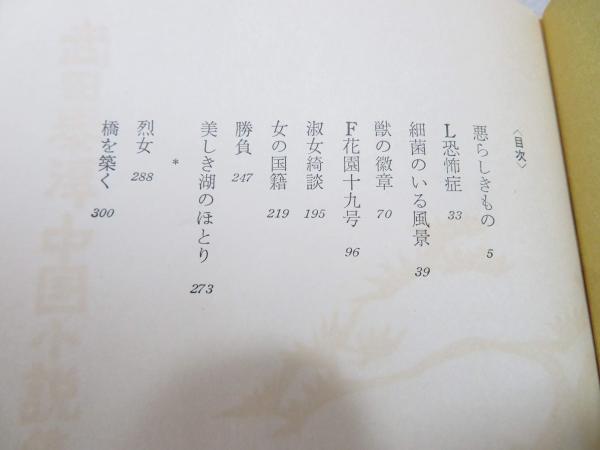 〈目次〉
悪らしきもの 5
L恐怖症 33
細菌のいる風景 39
獣の徽章 70
F花園十九号 96
淑女綺談 195
女の国籍 219
勝負 247
美しき湖のほとり 273
*
烈女 288
橋を築く 300
中国小説